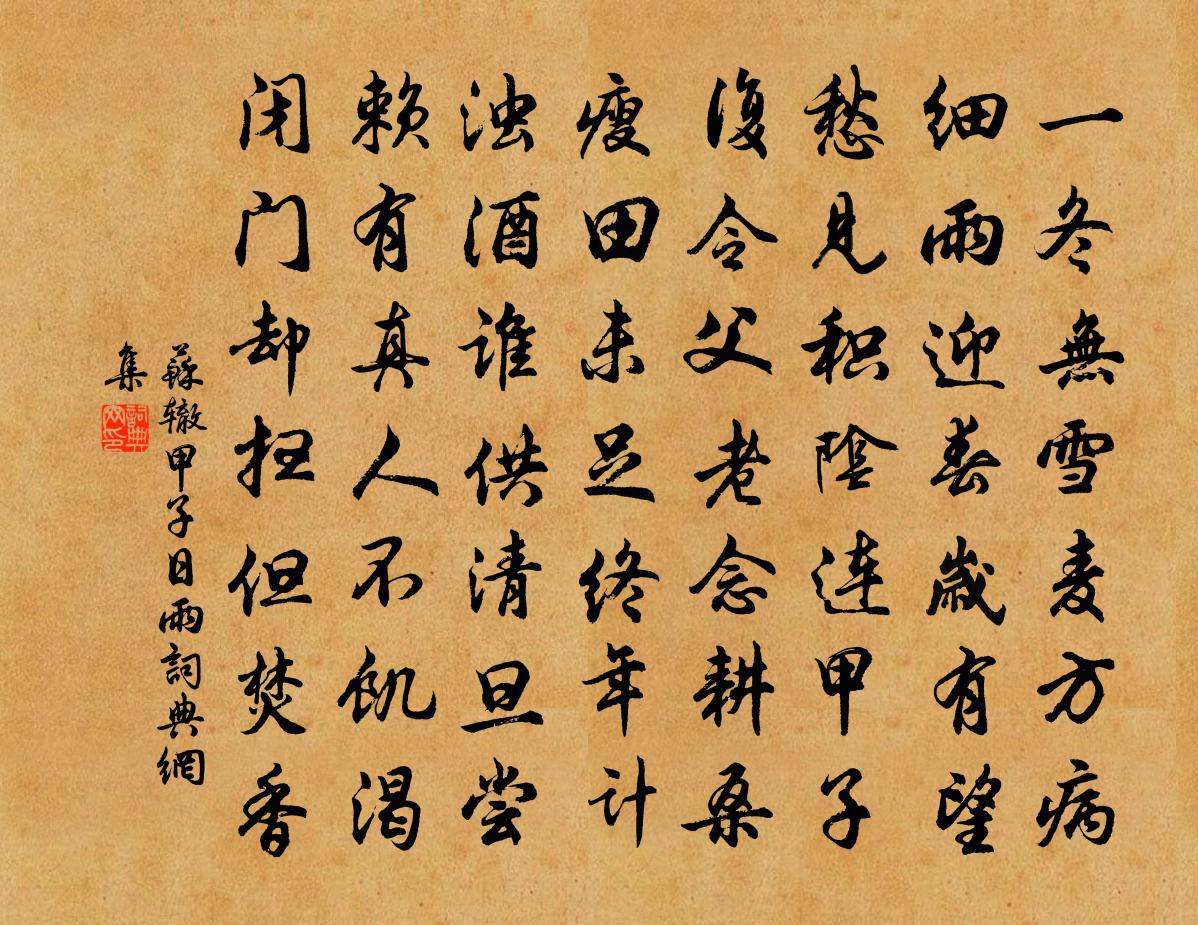 一冬無雪麦方病
细雨迎春歲有望
愁见积陰连甲子
復令父老念耕桑
瘦田未足终年计
浊酒谁供清旦尝
赖有真人不饥渴
闭门却扫但焚香
蘇辙甲子日雨詞典網
集
詞典网印